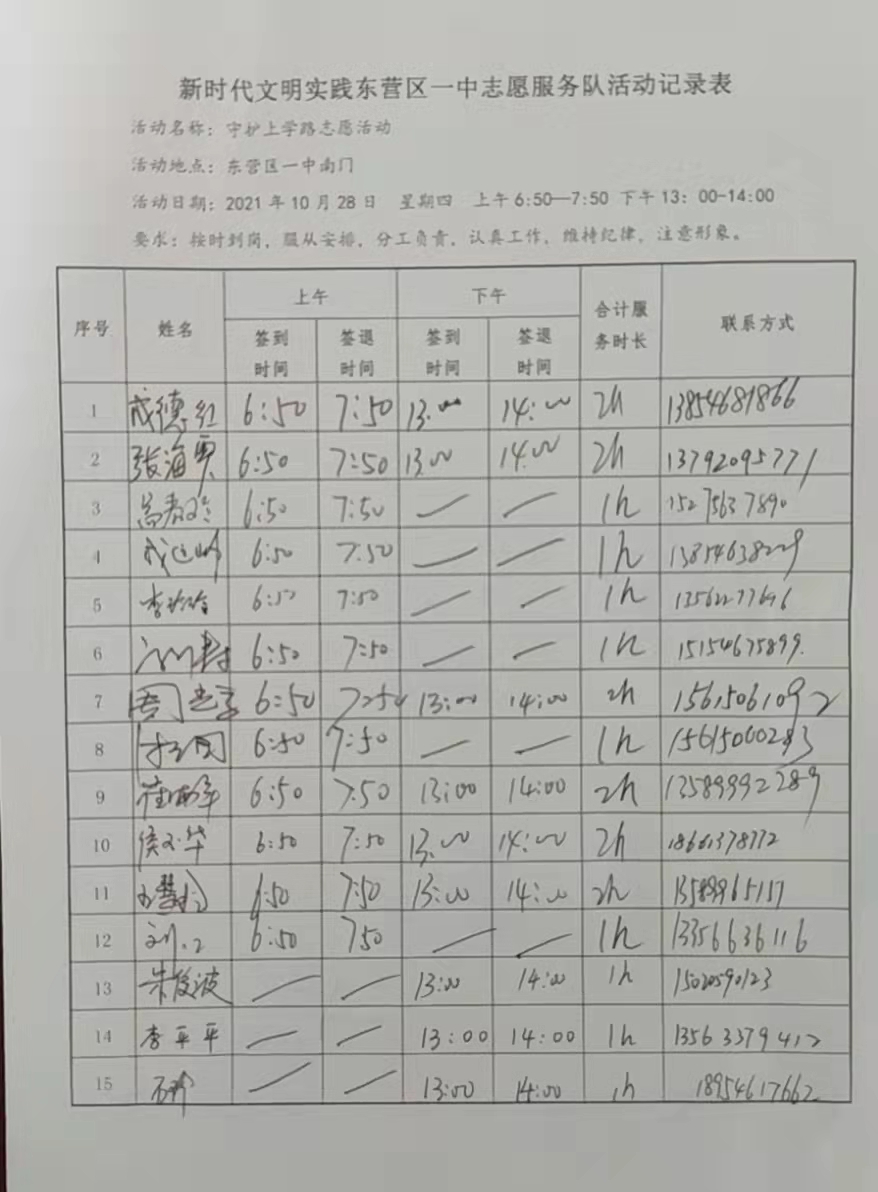 新时代文明实践东营区一中志愿服务队活动记录表
活动名称：守护上学路志愿活动
活动地点：东营区一中南门
活动日期：2021年10月28日 星期四 上午6:50—7:50 下午13：00-14:00
要求：按时到岗，服从安排，分工负责，认真工作，维持纪律，注意形象。
序号 姓名 上午 下午 合计服务时长 联系方式
签到时间 签退时间 签到时间 签退时间
1 成德红 6:50 7:50 13:00 14:00 2h 13854681866
2 张海 6:50 7:50 13:00 14:00 2h 13792095771
3 6:50 7:50 — — 1h 15275637890
4 6:50 7:50 — — 1h 13854638229
5 李玲玲 6:50 7:50 — — 1h 13562277696
6 6:50 7:50 — — 1h 15154675899.
7 周 6:50 7:50 13:00 14:00 2h 15615061092
8 6:50 7:50 — — 1h 15615000283
9 崔海军 6:50 7:50 13:00 14:00 2h 13589992289
10 侯小华 6:50 7:50 13:00 14:00 2h 18661378772
11 6:50 7:50 13:00 14:00 2h
12 刘 6:50 7:50 — — 1h 13356636116
13 朱俊波 — — 13:00 14:00 1h 15020590123
14 李平平 — — 13:00 14:00 1h 13563379412
15 石玲 — — 13:00 14:00 1h 18954617662